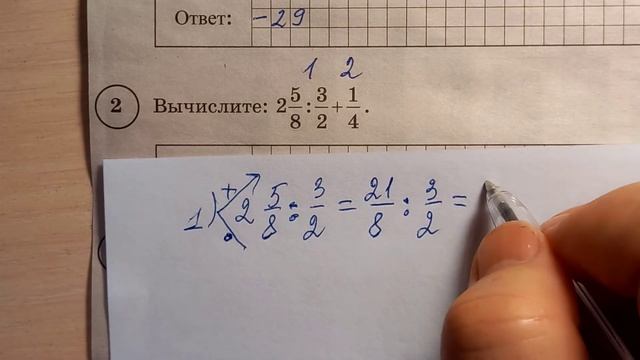 Ответ: -29
1 2
2 Вычислите: 2 5/8 : 3/2 + 1/4.
1) 2 5/8 : 3/2 = 21/8 : 3/2 =